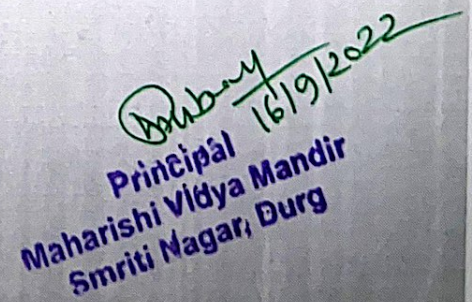 16/9/2022
Principal
Maharishi Vidya Mandir
Smriti Nagar, Durg